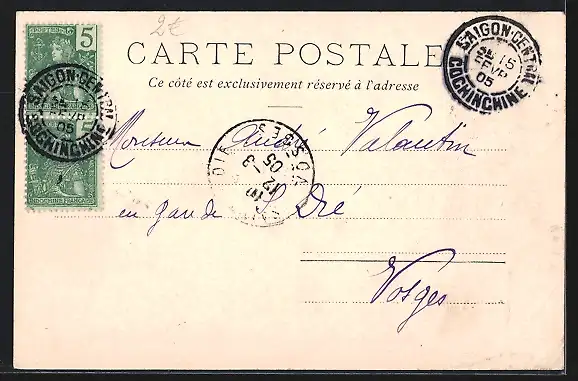 2€
POSTES
5
CARTE POSTALE
Ce côté est exclusivement réservé à l'adresse
SAIGON-CENTRAL
15
FEVR
05
COCHINCHINE
SAIGON-CENTRAL
05
COCHINCHINE
INDOCHINE FRANÇAISE
Monsieur André Valentin
DIE
VOSGES
12 - 3
05
en gare de St Dié
Vosges